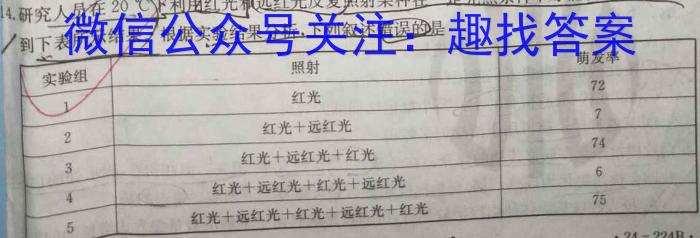 14.研究人员在20 ℃下利用红光和远红光反复照射某种在
到下表
微信公众号关注：趣找答案
根据实验结果分析,下列叙述错误的是
实验组 照射 萌发率
1 红光 72
2 红光＋远红光 7
3 红光＋远红光＋红光 74
4 红光＋远红光＋红光＋远红光 6
5 红光＋远红光＋红光＋远红光＋红光 75
·24－224B·